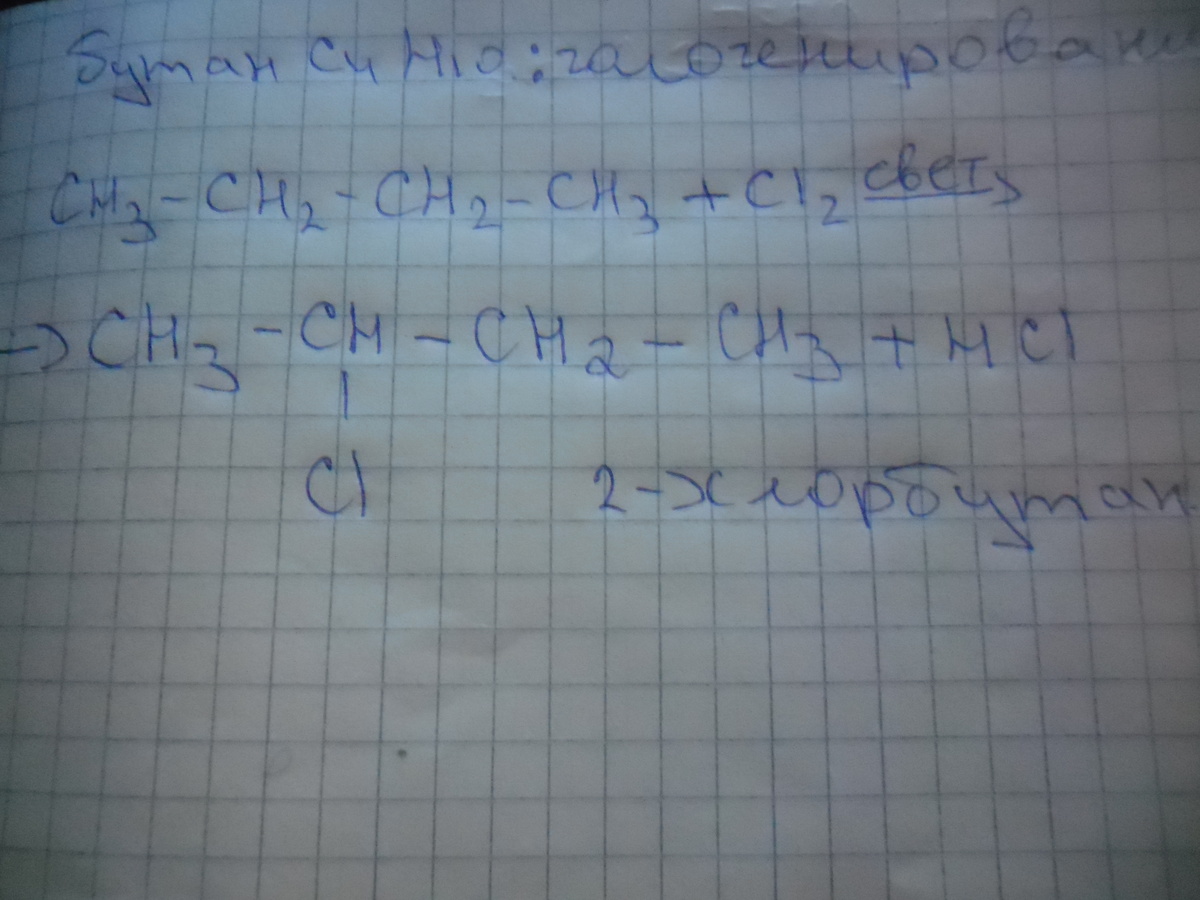 Бутан C4H10: галогенировани
CH3-CH2-CH2-CH3 + Cl2 свет→
→ CH3-CH-CH2-CH3 + HCl
|
Cl 2-хлорбутан